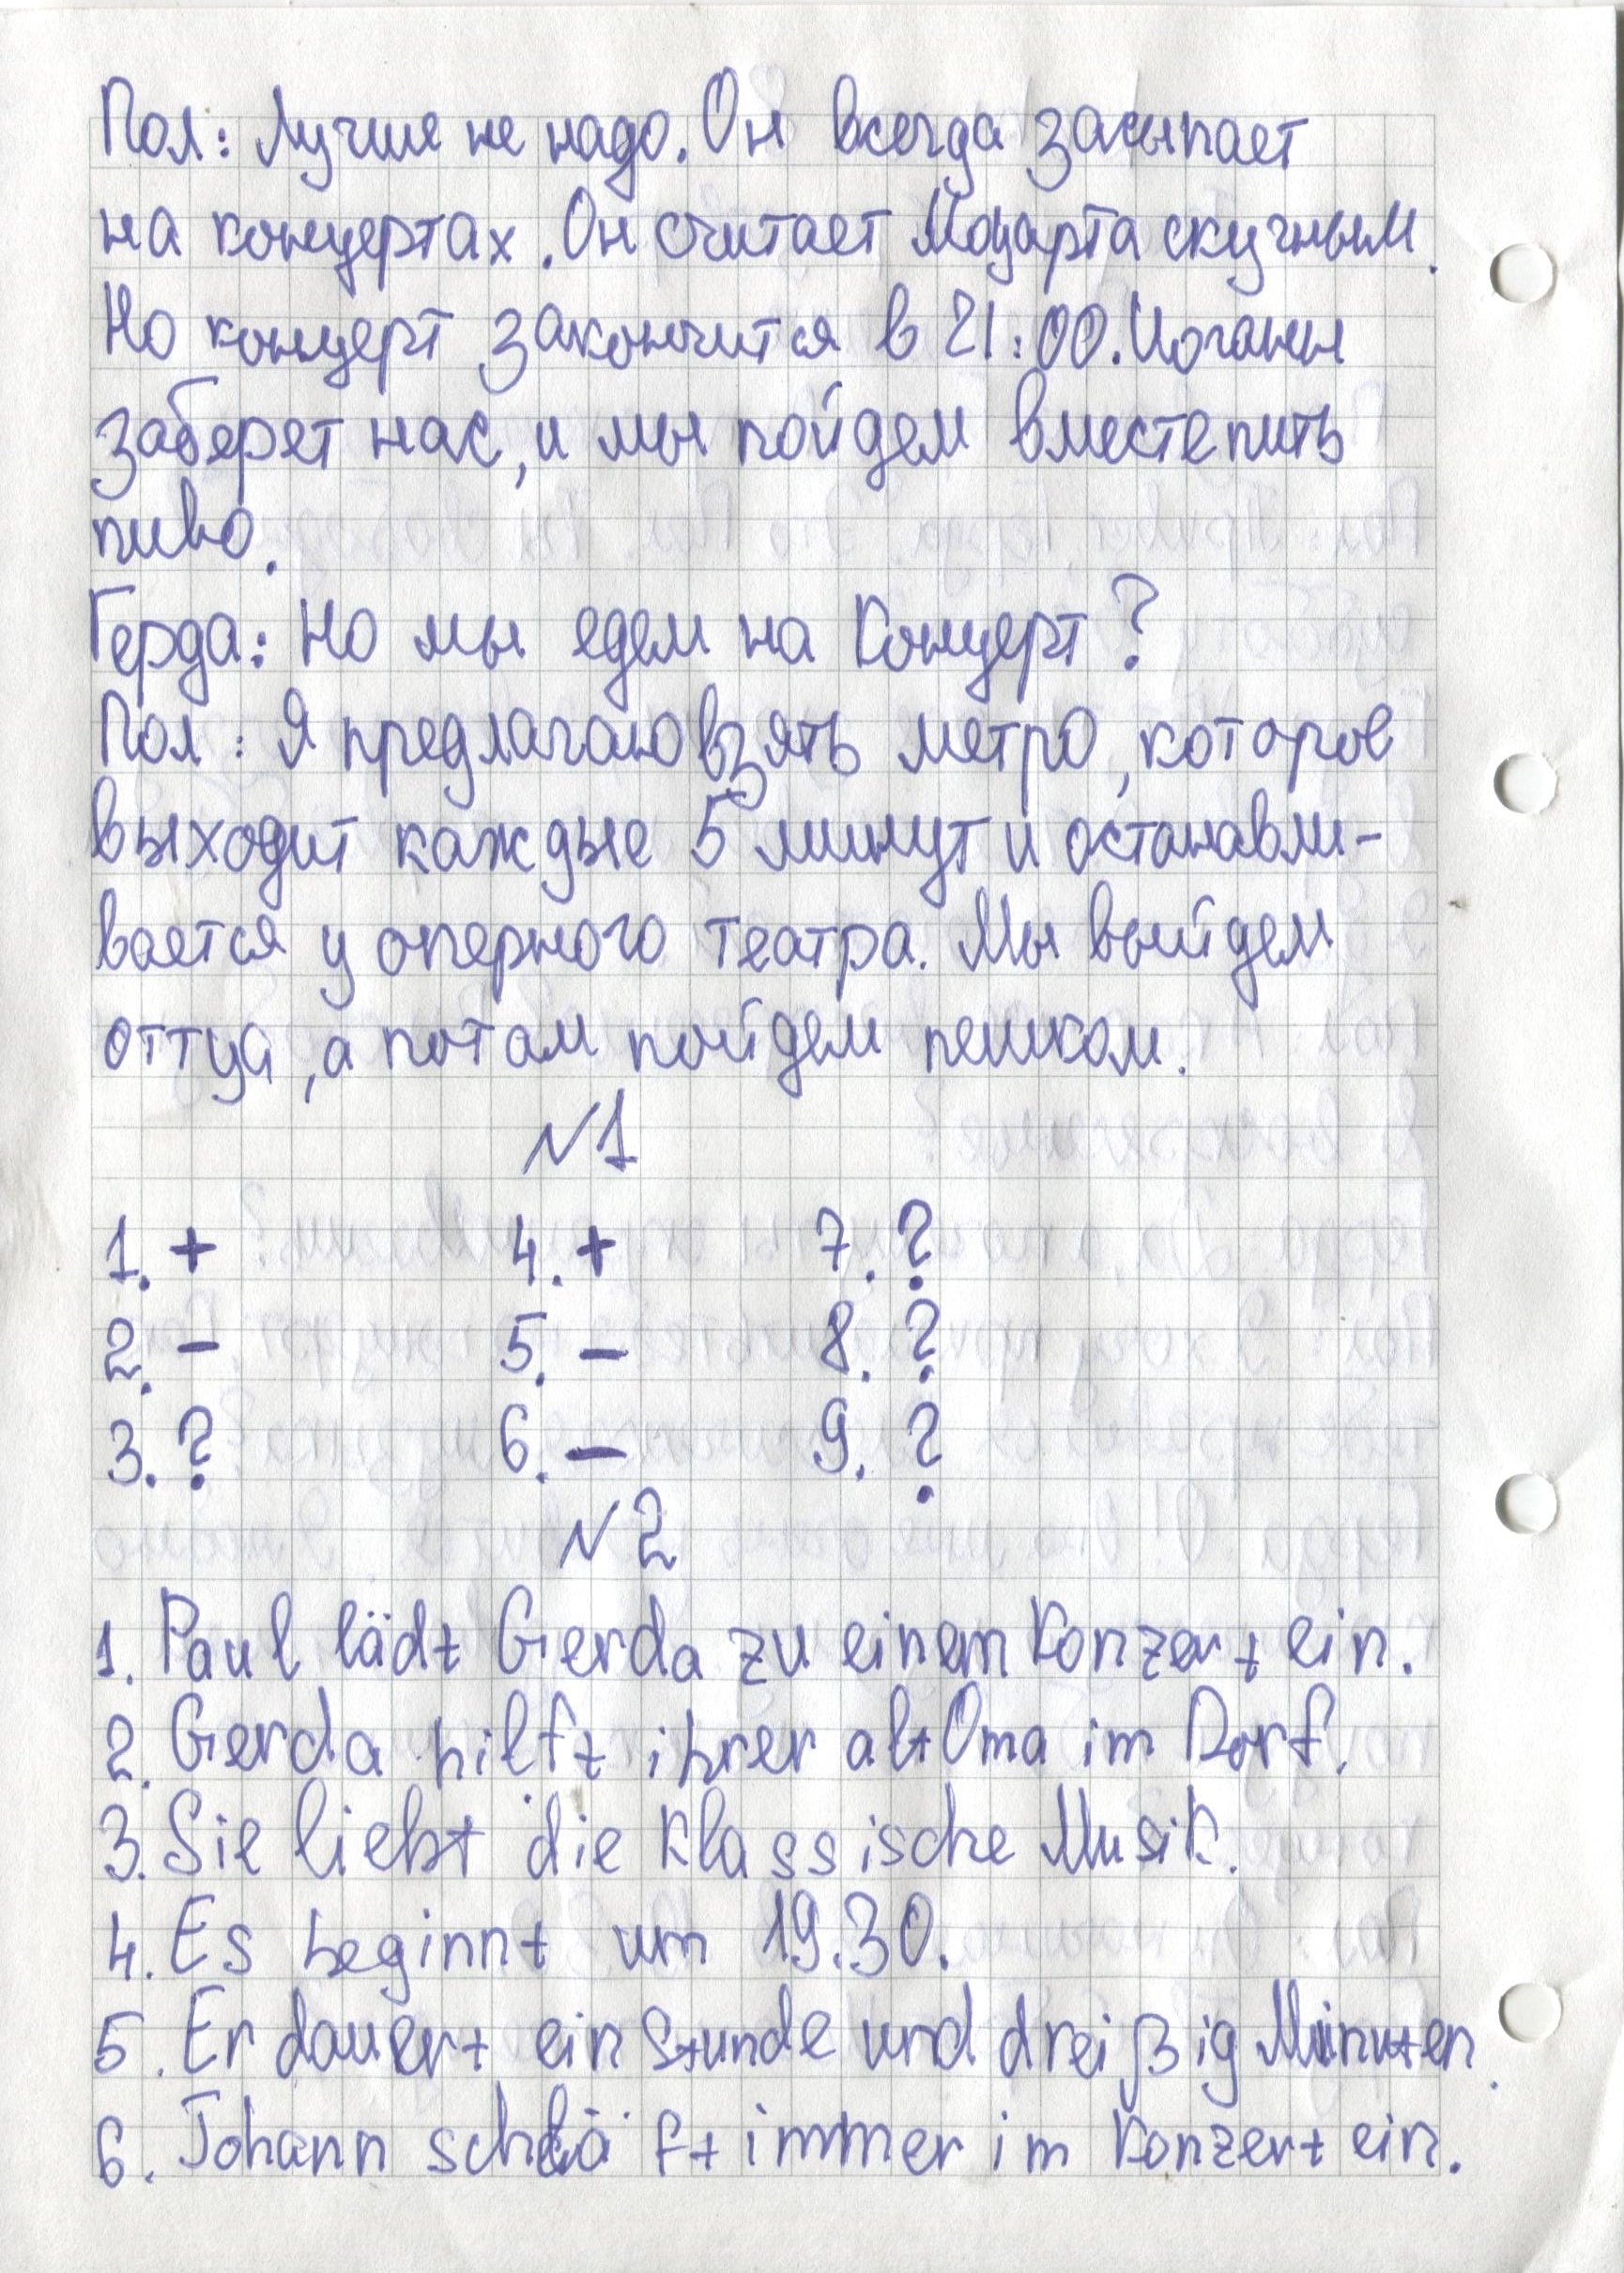 Пол: Лучше не надо. Он всегда засыпает
на концертах. Он считает Моцарта скучным.
Но концерт закончится в 21:00. Иоганн
заберет нас, и мы пойдем вместе пить
пиво.
Герда: Но мы едем на концерт?
Пол: Я предлагаю взять метро, которое
выходит каждые 5 минут и останавли-
вается у оперного театра. Мы выйдем
оттуа, а потом пойдем пешком.
№1
1. + 4. + 7. ?
2. - 5. - 8. ?
3. ? 6. - 9. ?
№2
1. Paul lädt Gerda zu einem Konzert ein.
2. Gerda hilft ihrer alt Oma im Dorf.
3. Sie liebt die klassische Musik.
4. Es beginnt um 19.30.
5. Er dauert ein Stunde und dreißig Minuten.
6. Johann schläft immer im Konzert ein.